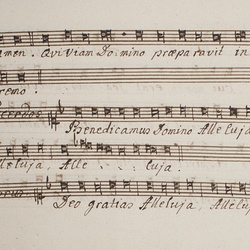 amen. Qui Viam Domino præparavit in
eremo.
Benedicamus Domino Alleluja
lleluja, Alle . . . luja.
Deo gratias Alleluja, Allelu